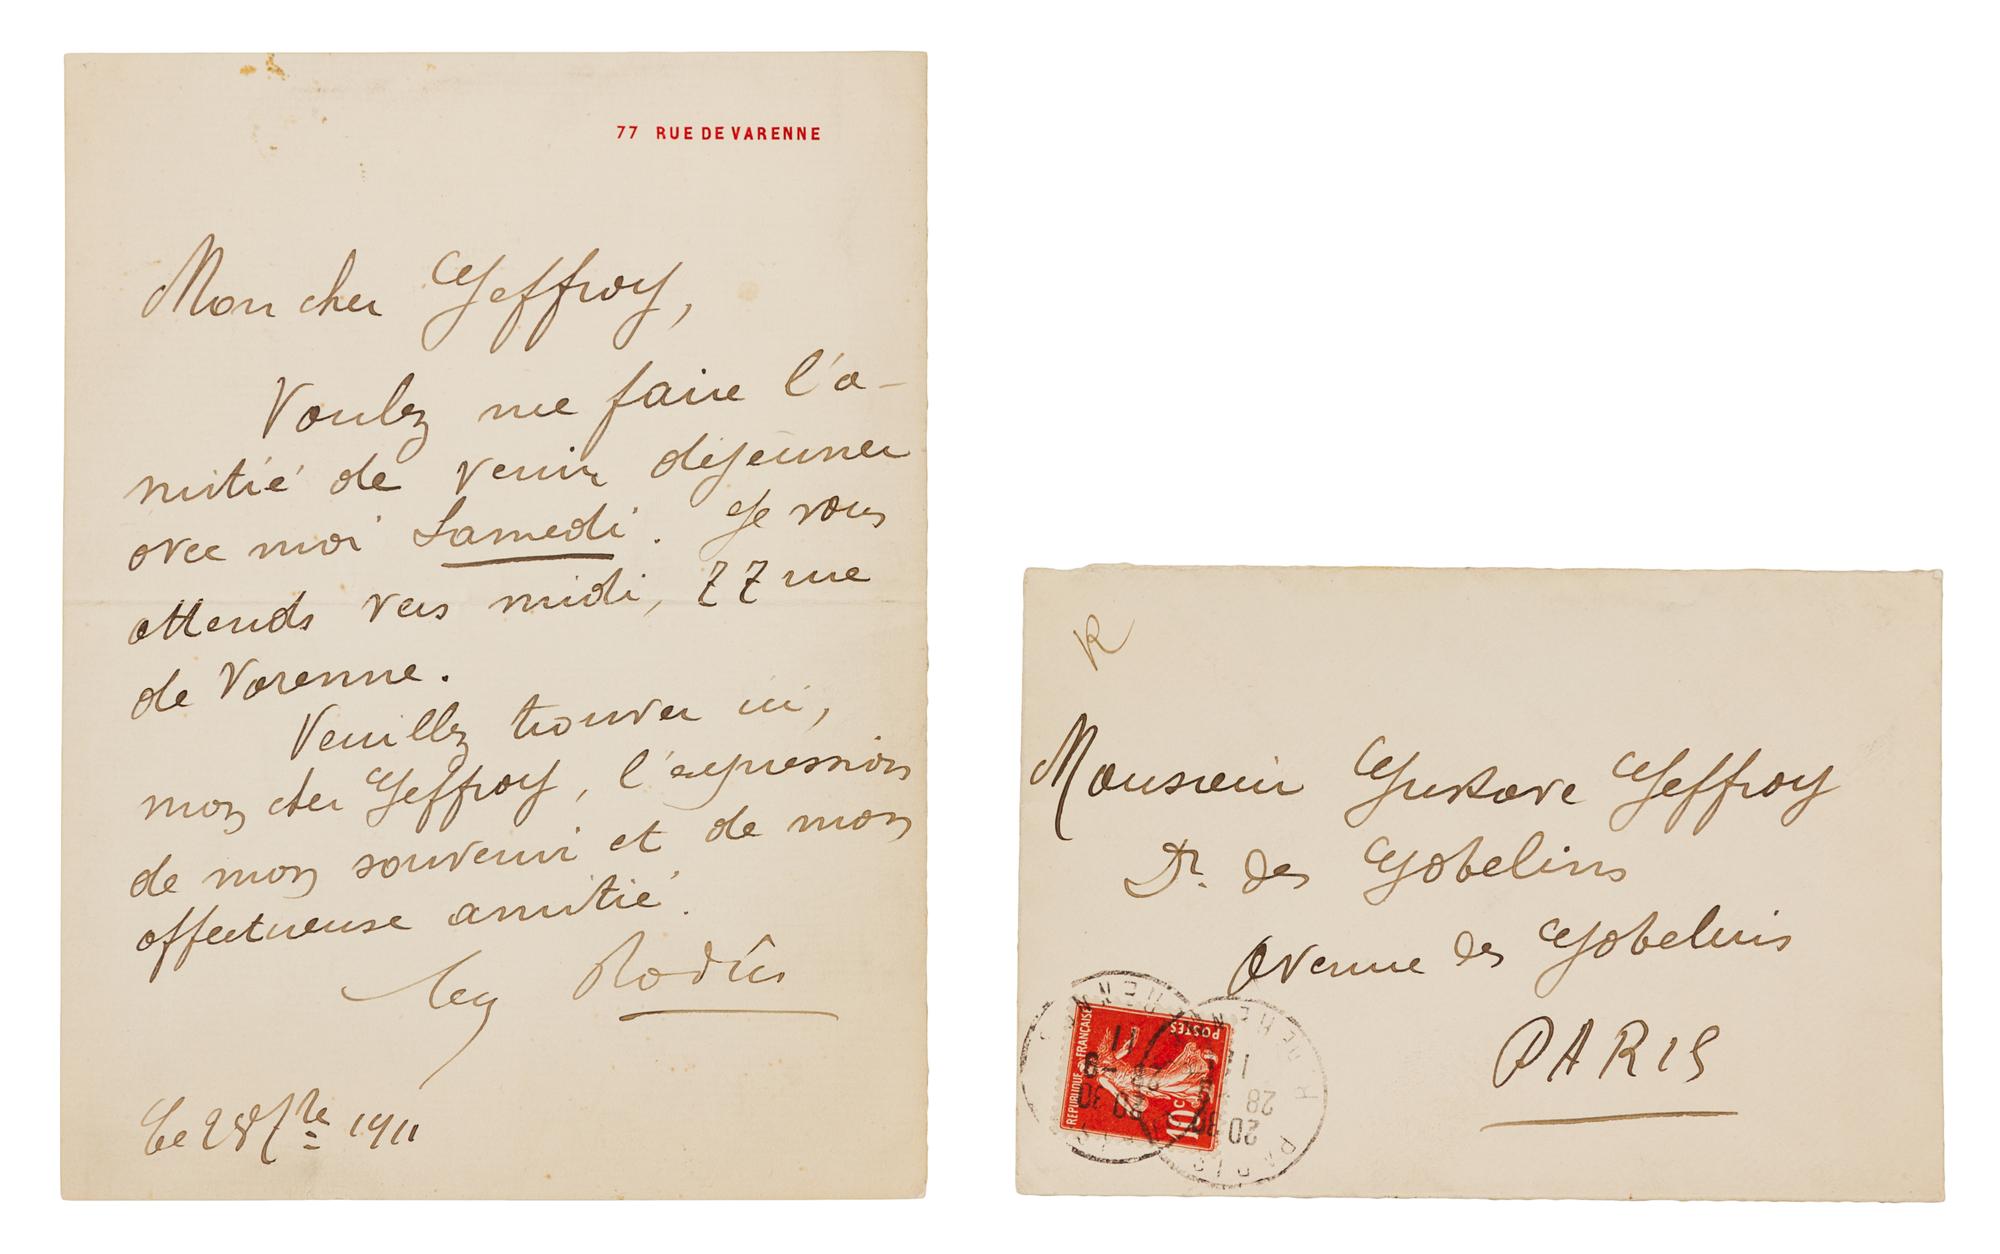 77 RUE DE VARENNE
Mon cher Geffroy,
Voulez me faire l'a-
mitié de venir déjeuner
avec moi Samedi. Je vous
attends vers midi, 77 rue
de Varenne.
Veuillez trouver ici,
mon cher Geffroy, l'expression
de mon souvenir et de mon
affectueuse amitié.
Aug Rodin
Le 28 7bre 1911
R
Monsieur Gustave Geffroy
Dr. des Gobelins
Avenue des Gobelins
PARIS
REPUBLIQUE FRANÇAISE
POSTES
10c
20 30
28 - 9
11
PARIS
20 30
28